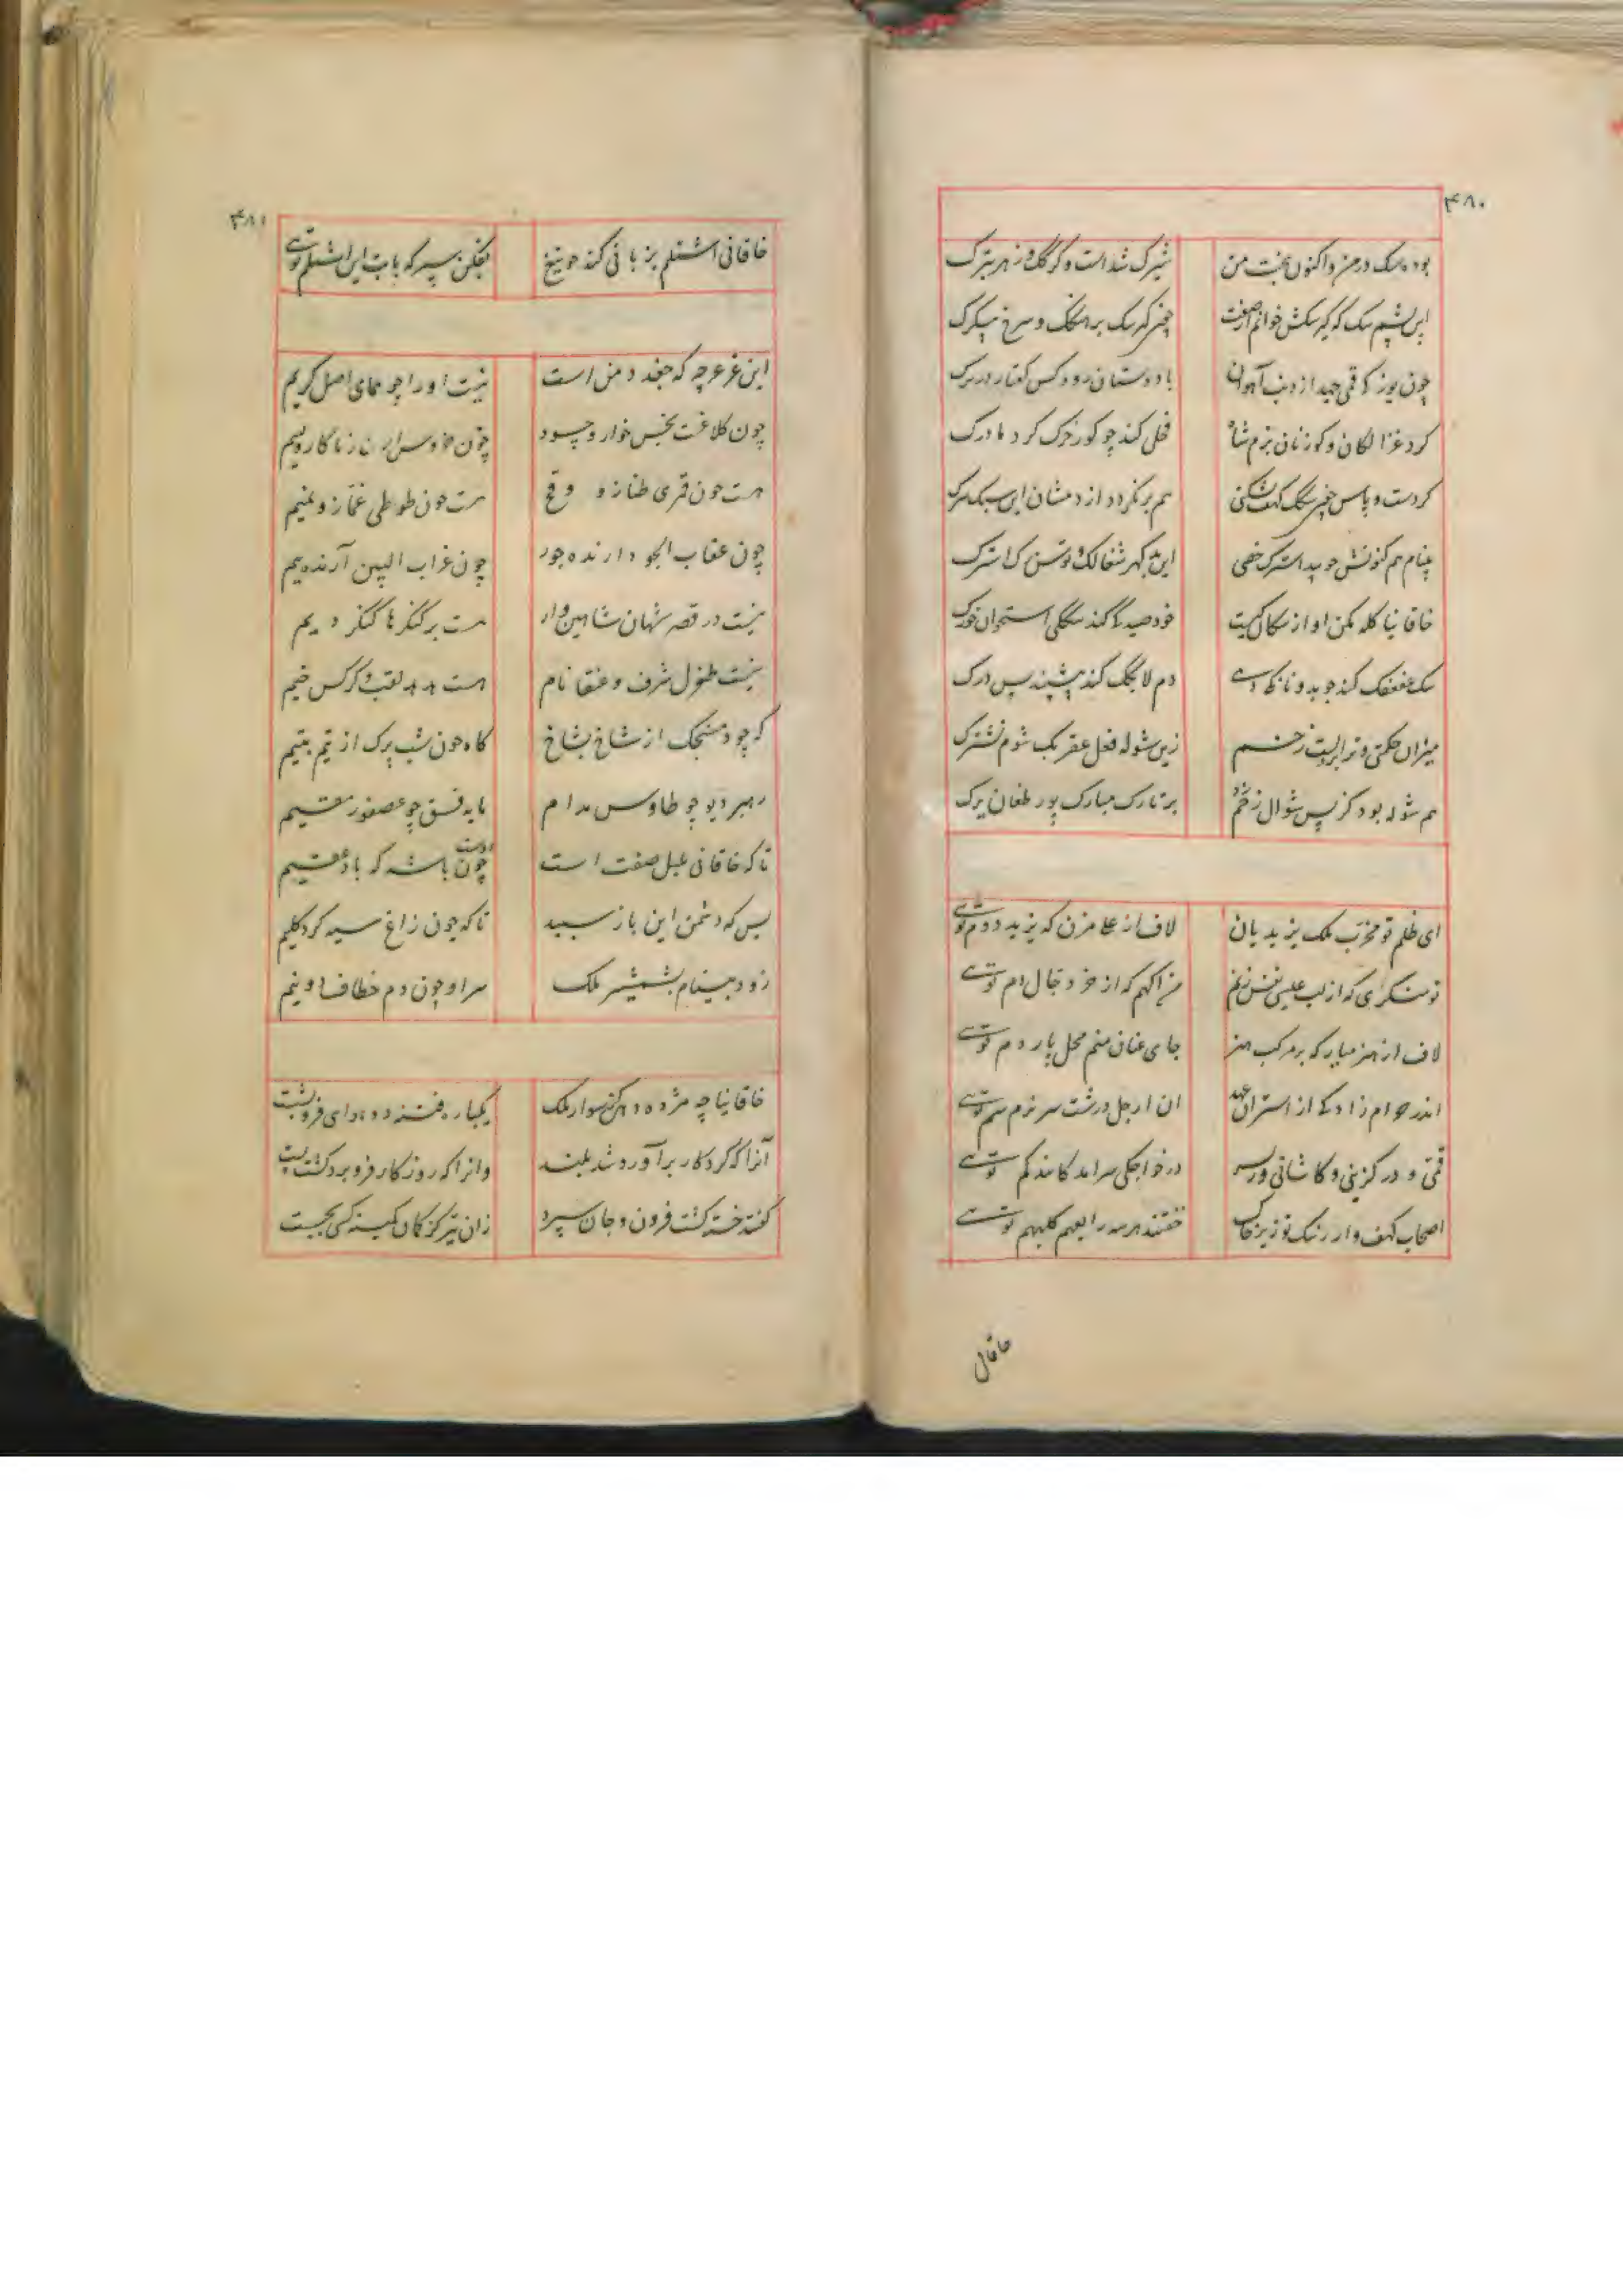 ۴۸۰
بوده سک در من و اکنون بخت من شیرک شد است و گرگک و زهر بترک
این پشم سک که گر سکش خوانم از صفت
چون یوز که قمی جهد از دنب آهوان با دوستان رود کس کفتار در برک
کرد غزالکان و کوزنان بزم شاه فحلی کند چو کور خرک کرد مادرک
کردست و پاس سک کهف هم بر نگردد از دمشان این سبک سرک
پیغام هم کنونش چو پیداست خصی این بد گهر شغالک توسن
خاقانیا کله مکن او از سکان کیست خود صید کی کند سککی استخوان خورک
سک عفعفک کند چو بدو نانکی دهی دم لابگک کند بنشیند پس درک
میزان حکمتی و ترا بر دلست زخم زین شوله فعل عقربک شوم نشترک
هم شوله بود کز پس شوال زخم زد بر تارک مبارک پور طغان یرک
ای ظلم تو مخرب ملک یزیدیان لاف از علا مزن که یزید دوم توئی
تو منکری که از لب عیسی نفس زنم من آگهم که از خر دجال دم توئی
لاف از هنر میار که بر مرکب هنر جای عنان منم محل پاردم توئی
اندر حرام زادگی از استران عهد ان ارجل درشت سر نرم سم توئی
قمی و در گزینی و کاشانی در خواجکی سرامد کامد کم توئی
اصحاب کهف وار ز ننک تو زیر خاک خفتند هر سه رابعهم کلبهم توئی
خاقانی
۴۸۱
خاقانی اشتلم بزبانی کند چو تیغ بفکن سپر که بابت این اشتلم توئی
این غرغرچه که جغد دمن است نیست او را چو همای اصل کریم
چون کلاغست نجس خوار و حسود چون خروس است زناکار و لئیم
هست چون قمری طناز و وقح هست چون طوطی غماز و نمیم
چون عقاب الجو دارنده جور چون غراب البین آرنده بیم
نیست در قصر شهان شاهین وار هست بر کنگرها کنگر دیم
نیست طغرل شرف و عنقا نام هست هدهد لقب و کرکس خیم
که چو گنجشک از شاخ بشاخ گاه چون شب پرک از تیم بتیم
رهبر دیو چو طاوس مدام مایه فسق چو عصفور مقیم
تا که خاقانی بلبل صفت است چون باشه که باد عقیم
بس که دشمن این باز سپید تا که چون زاغ سیه کرد گلیم
زود بینام بشمشیر ملک سر او چون دم خطاف دو نیم
خاقانیا چه مژده دهی کز سوار ملک یکباره فتنه دو هوائی فرو نشست
آنرا که کردگار برآورد شد بلند وانرا که روزگار فرو برد گشت پست
گفتند خسته گشت فرون و جان سپرد زان تیر کز کمان کمینه کسی بجست